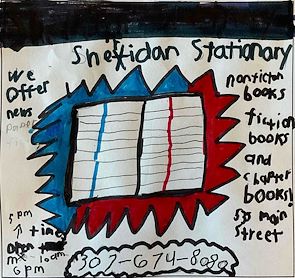 Sheridan Stationary
we
offer
news
paper
nonficton
books
fiction
books
and
chapter
books!
50 main
street
5 pm
time
open
10am
6 pm
307-674-8080